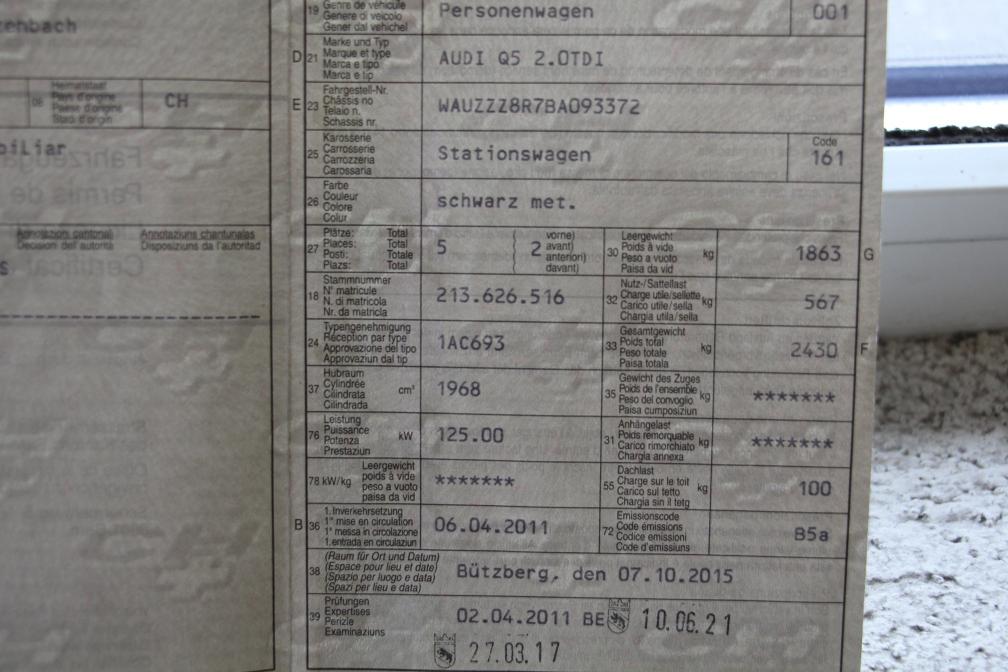 19 Genre de véhicule Personenwagen 001
Genere di veicolo
Gener dal vehichel
D 21 Marke und Typ AUDI Q5 2.0TDI
Marque et type
Marca e tipo
Marca e tip
E 23 Fahrgestell-Nr. WAUZZZ8R7BA093372
Châssis no
Telaio n.
Schassis nr.
25 Karosserie Stationswagen Code 161
Carrosserie
Carrozzeria
Carossaria
26 Farbe schwarz met.
Couleur
Colore
Colur
27 Plätze: Total 5 2 vorne)
Places: Total avant)
Posti: Totale anteriori)
Plazs: Total davant)
30 Leergewicht kg 1863 G
Poids à vide
Peso a vuoto
Paisa da vid
18 Stammnummer 213.626.516
N° matricule
N. di matricola
Nr. da matricla
32 Nutz-/Sattellast kg 567
Charge utile/sellette
Carico utile/sella
Chargia utila/sella
24 Typengenehmigung 1AC693
Réception par type
Approvazione del tipo
Approvaziun dal tip
33 Gesamtgewicht kg 2430 F
Poids total
Peso totale
Paisa totala
37 Hubraum cm³ 1968
Cylindrée
Cilindrata
Cilindrada
35 Gewicht des Zuges kg *******
Poids de l'ensemble
Peso del convoglio
Paisa cumposiziun
76 Leistung kW 125.00
Puissance
Potenza
Prestaziun
31 Anhängelast kg *******
Poids remorquable
Carico rimorchiato
Chargia annexa
78 kW/kg Leergewicht *******
poids à vide
peso a vuoto
paisa da vid
55 Dachlast kg 100
Charge sur le toit
Carico sul tetto
Chargia sin il tetg
B 36 1. Inverkehrsetzung 06.04.2011
1° mise en circulation
1° messa in circolazione
1. entrada en circulaziun
72 Emissionscode B5a
Code émissions
Codice emissioni
Code d'emissiuns
38 (Raum für Ort und Datum) Bützberg, den 07.10.2015
(Espace pour lieu et date)
(Spazio per luogo e data)
(Spazi per lieu e data)
39 Prüfungen 02.04.2011 BE 10.06.21
Expertises
Perizie
Examinaziuns
27.03.17
enbach
08 Heimatstaat CH
Pays d'origine
Paese d'origine
Stadi d'origin
biliar
Annotazioni cantonali Annotaziuns chantunalas
Décision de l'autorità Disposiziuns da l'autoritad